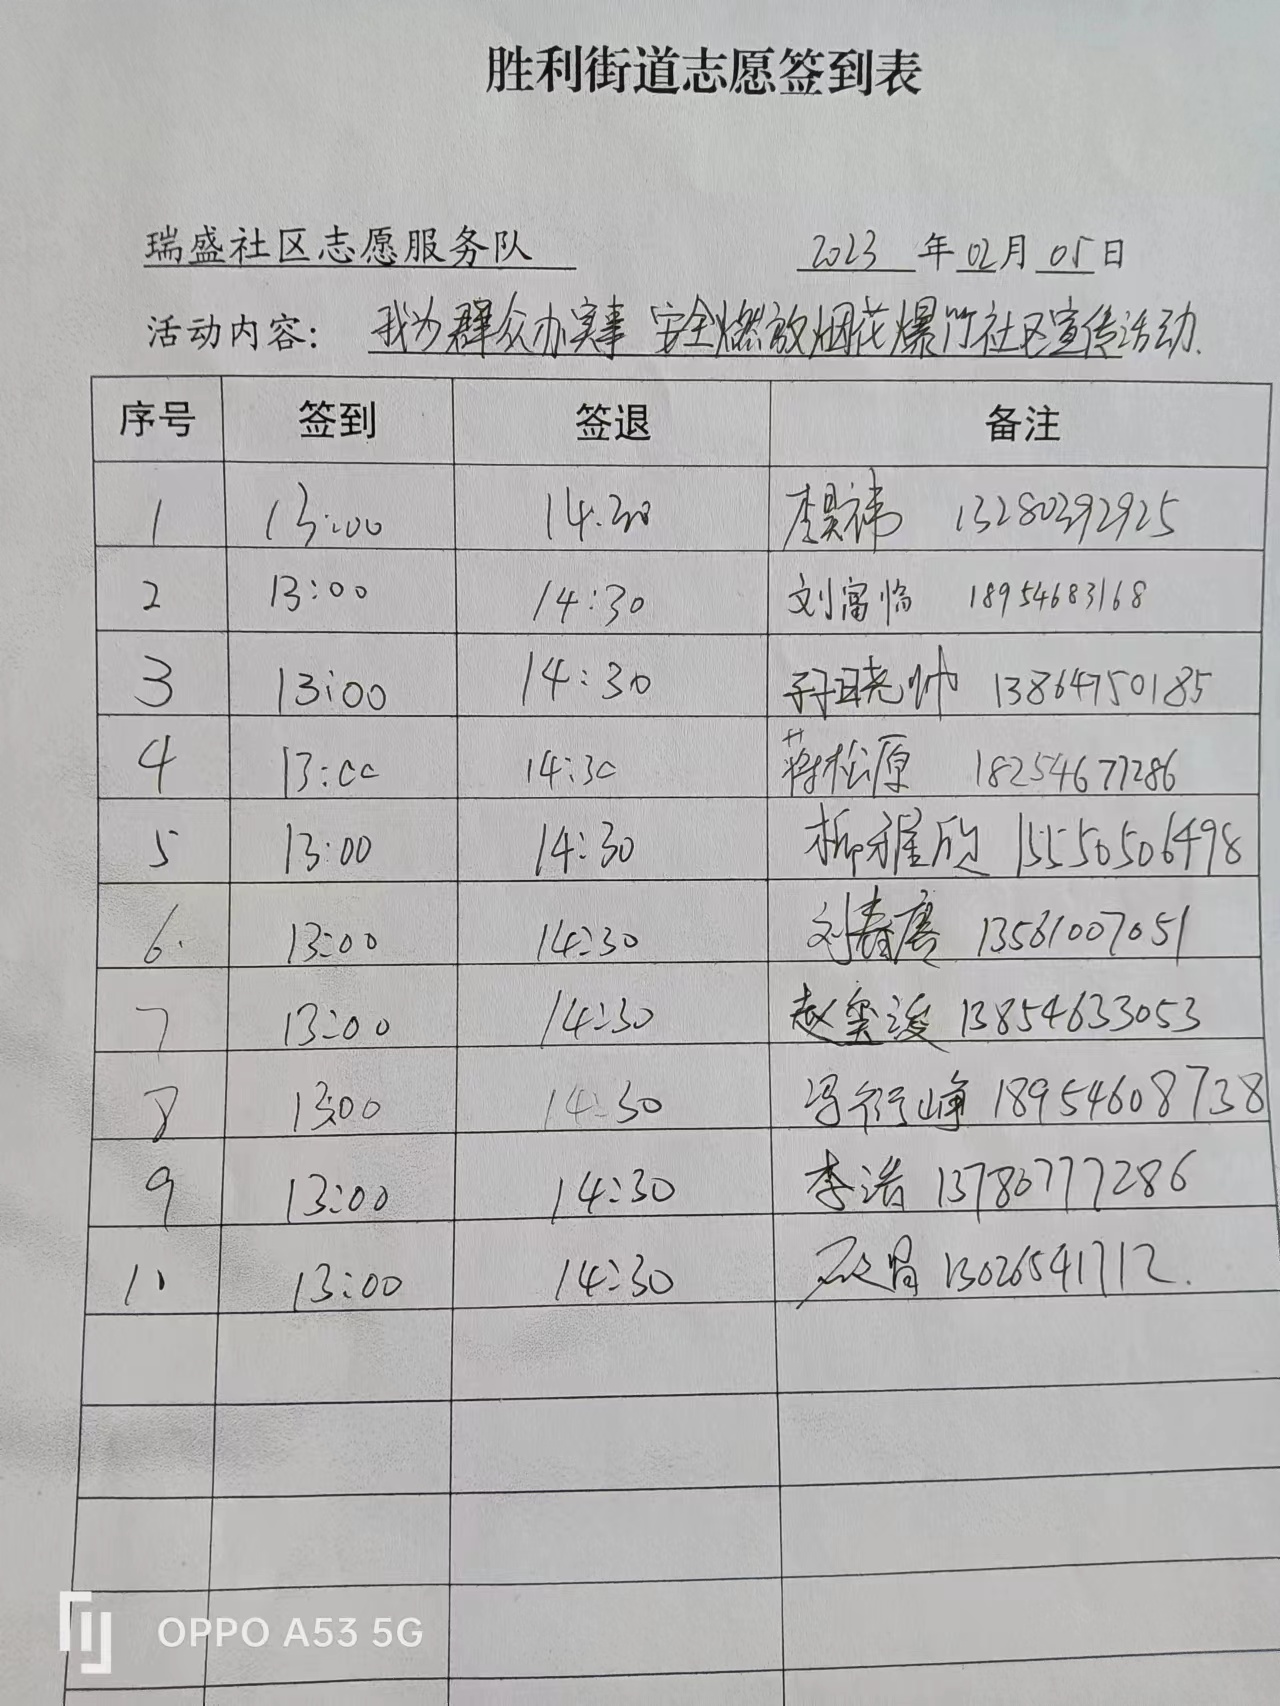 胜利街道志愿签到表
瑞盛社区志愿服务队 2023年02月05日
活动内容：我为群众办实事 安全燃放烟花爆竹社区宣传活动.
序号 签到 签退 备注
1 13:00 14:30 李昊祎 13280392925
2 13:00 14:30 刘富临 18954683168
3 13:00 14:30 孙晓帅 13864750185
4 13:00 14:30 蒋松原 18254677286
5 13:00 14:30 柳雅欣 15550506498
6. 13:00 14:30 刘春磨 13561007051
7 13:00 14:30 赵奕浚 13854633053
8 13:00 14:30 冯衍峥 18954608738
9 13:00 14:30 李浩 13780777286
10 13:00 14:30 13026541712.
OPPO A53 5G